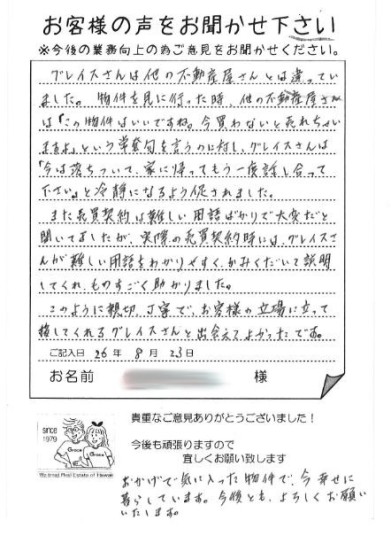 お客様の声をお聞かせ下さい
※今後の業務向上の為ご意見をお聞かせください。
グレイスさんは他の不動産屋さんとは違ってい
ました。物件を見に行った時、他の不動産屋さん
は「この物件はいいですね。今買わないと売れちゃい
ますよ」という営業句を言うのに対し、グレイスさんは
「今は落ちついて、家に帰ってもう一度話し合って
下さい」と冷静になるよう促されました。
また売買契約は難しい用語ばかりで大変だと
聞いてましたが、実際の売買契約時には、グレイスさ
んが難しい用語をわかりやすく、かみくだいて説明
してくれ、ものすごく助かりました。
このように親切、丁寧で、お客様の立場に立って
接してくれるグレイスさんと出会えてよかったです。
ご記入日 26年 8月 23日
お名前 様
貴重なご意見ありがとうございました!
since
1979
Grace
Grace
今後も頑張りますので
宜しくお願い致します
Real Estate
おかげで気に入った物件で、今幸せに
暮らしています。今後とも、よろしくお願い
いたします。